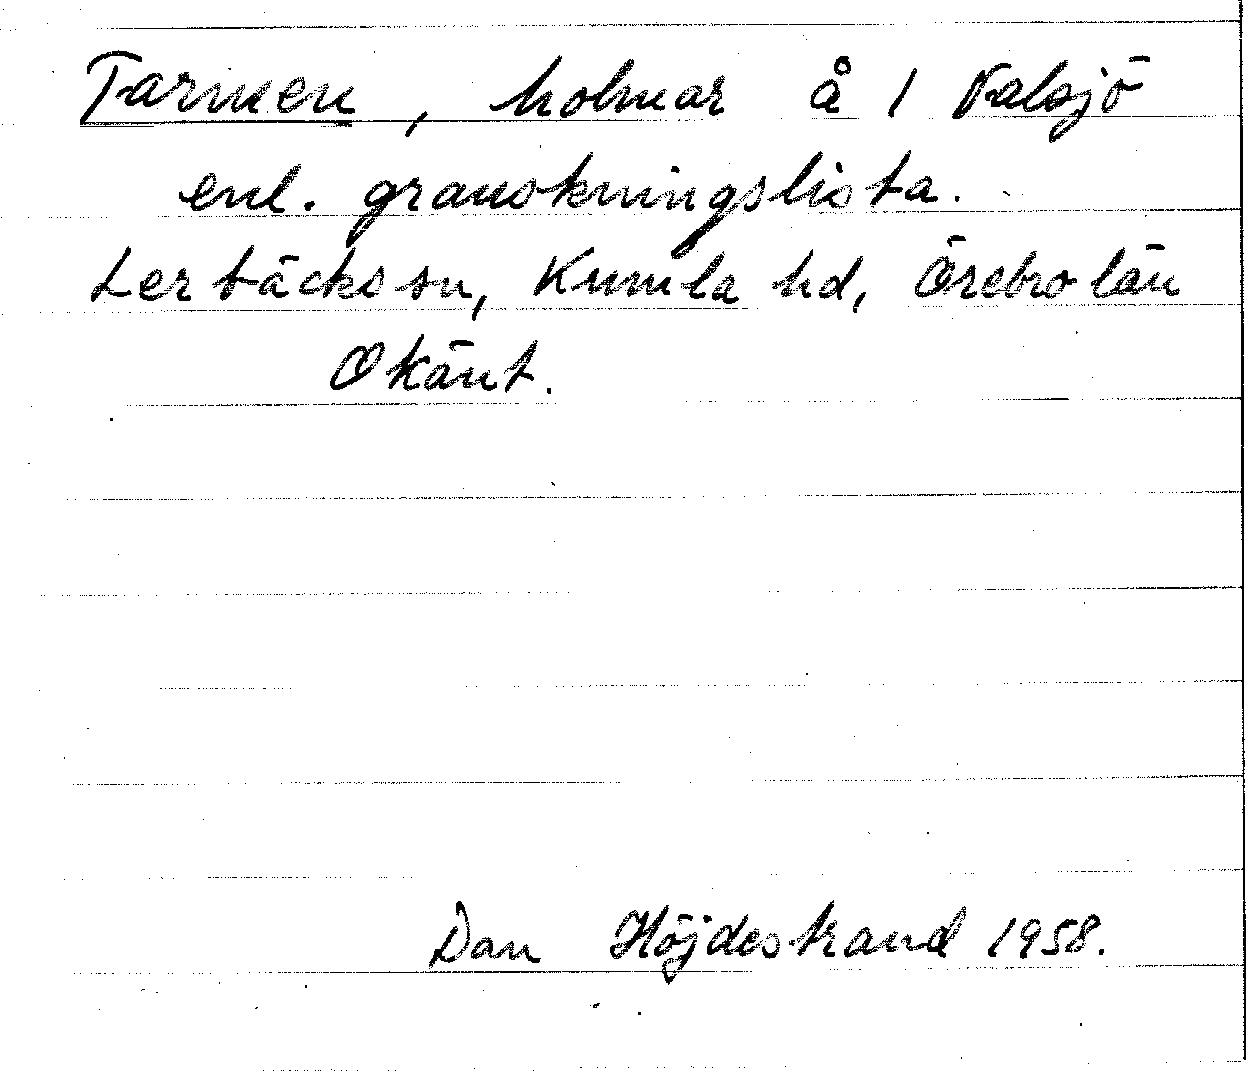 Tarmen, holmar å 1 Valsjö
enl. granskningslista.
Lerbäcks sn, Kumla hd, Örebro län
Okänt.
Dan Höjdestrand 1958.